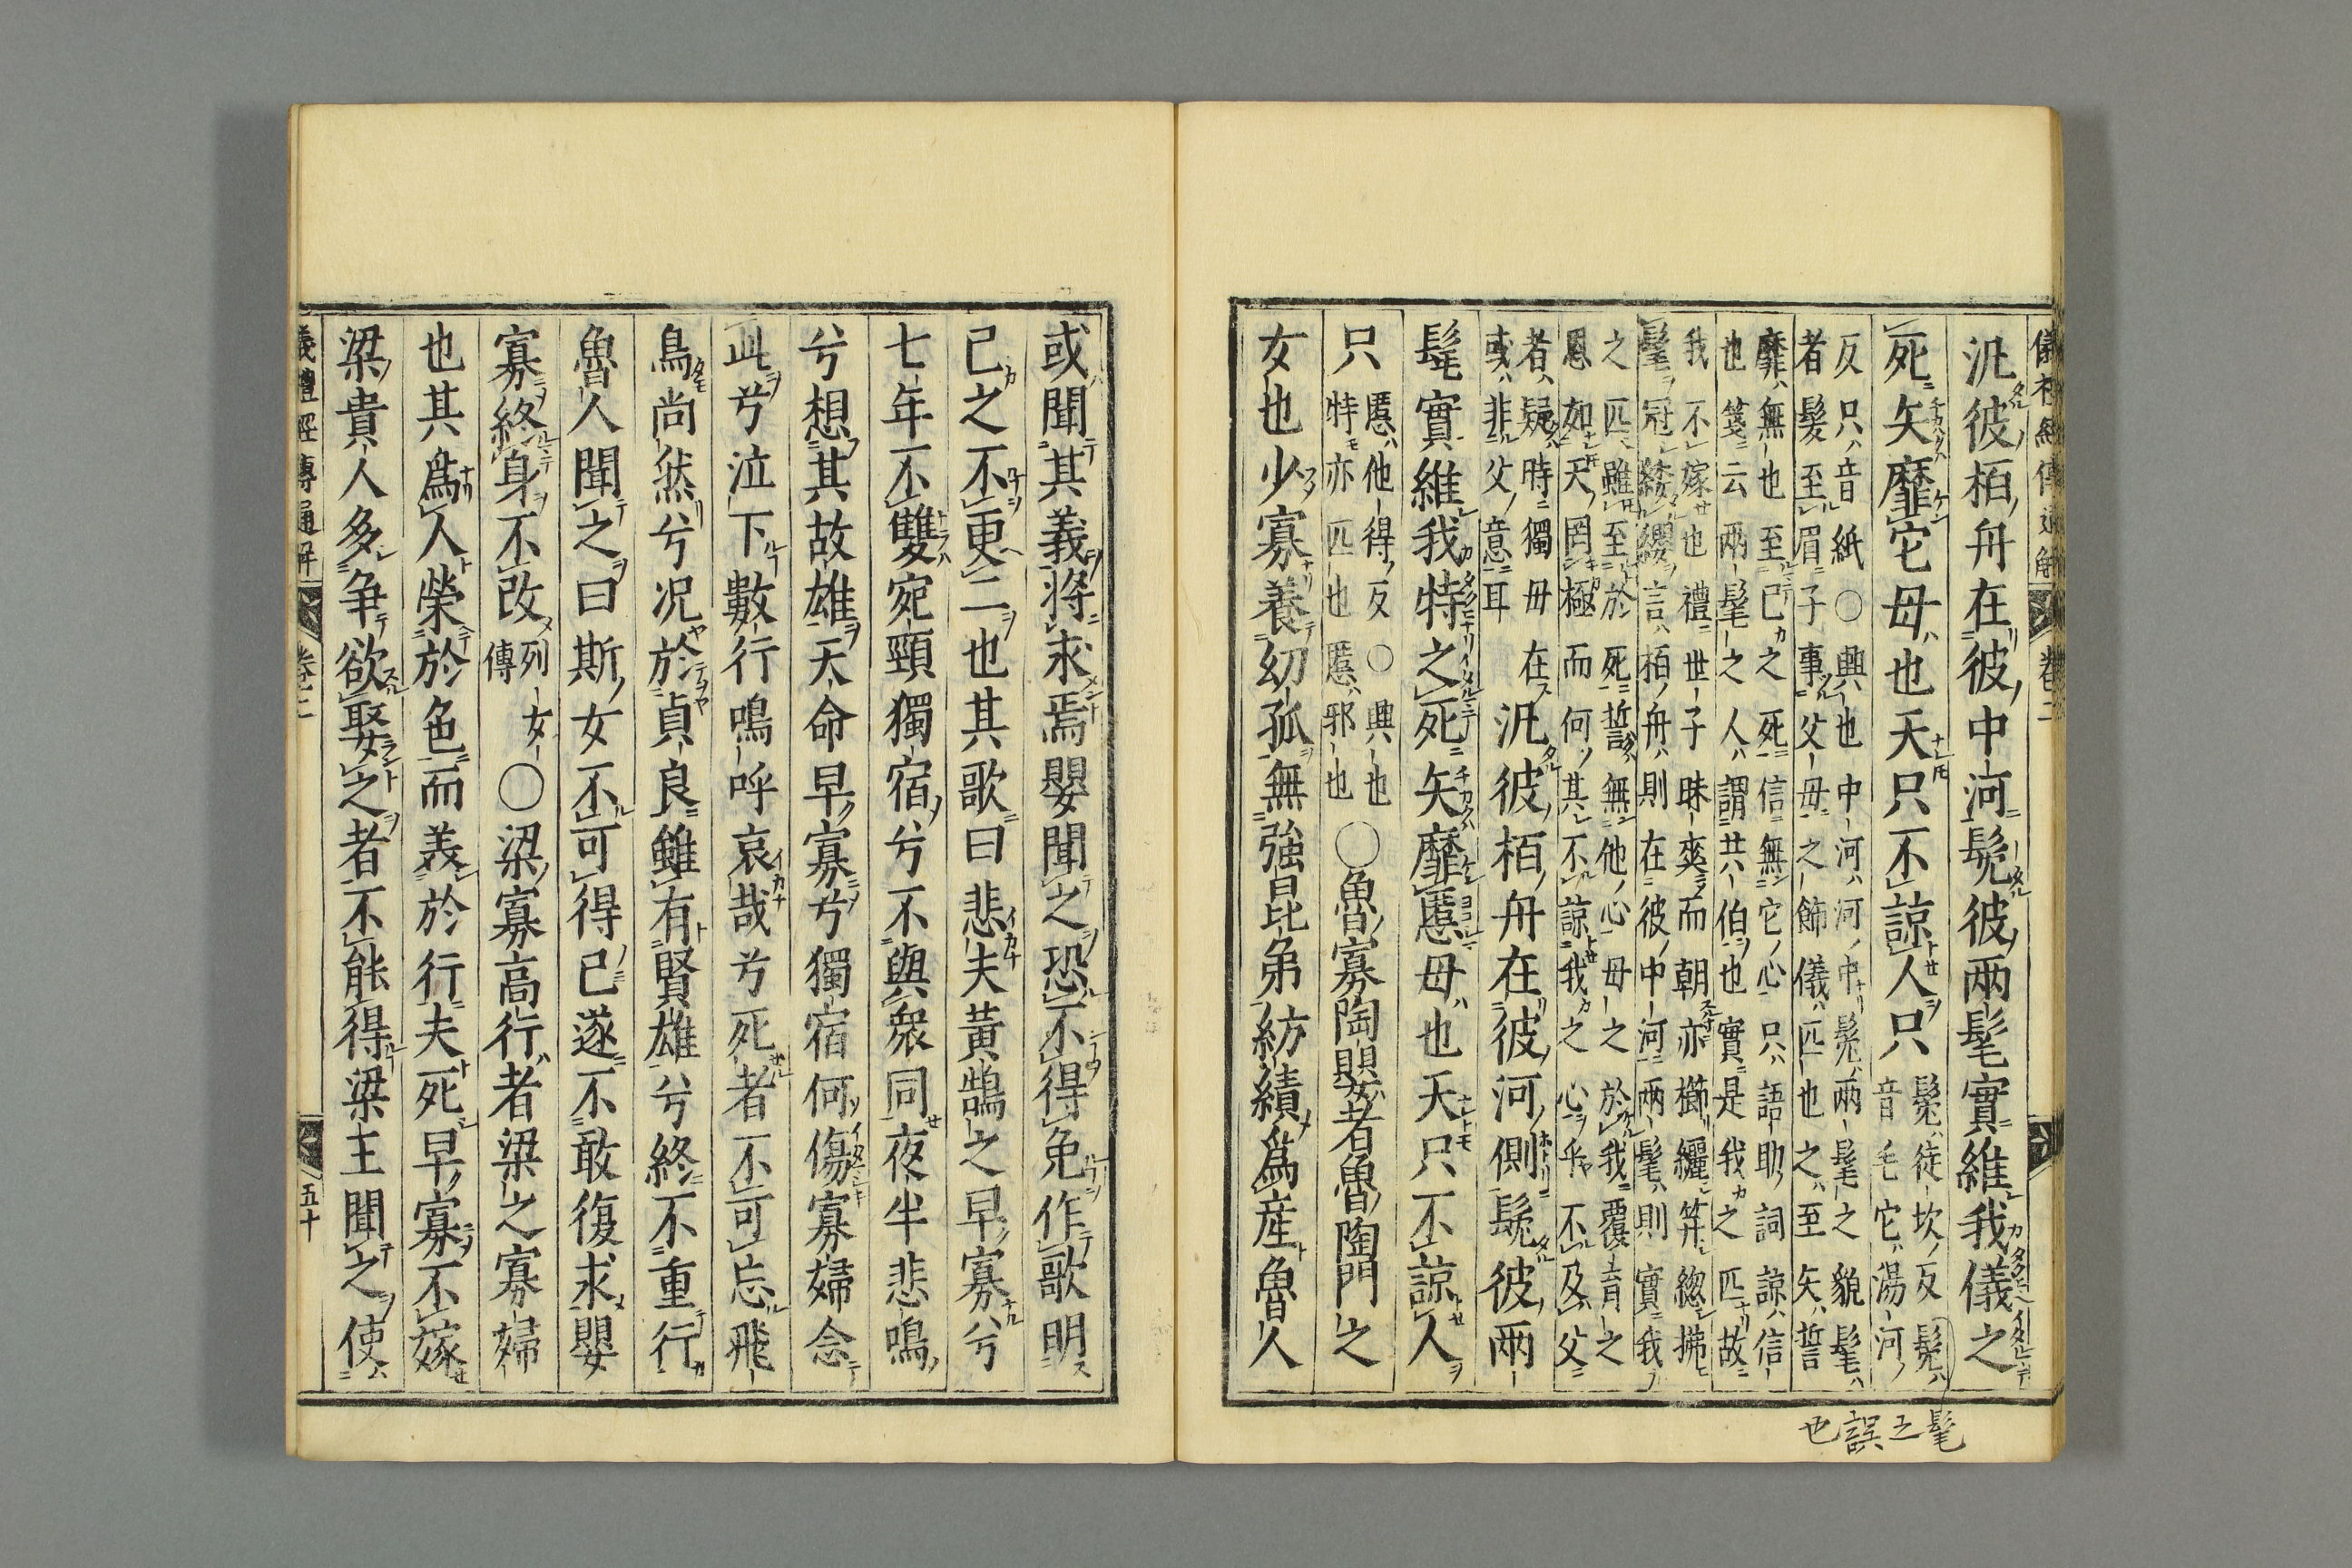 儀禮經傳通解 卷二
汎彼栢舟在彼中河髧彼兩髦實維我儀之
死矢靡它母也天只不諒人只
髧徒坎反髧
音毛它湯河
反只音紙〇興也中河河中髧兩髦之貌髦
者髮至眉子事父母之飾儀匹也之至矢誓
靡無也至己之死信無它心只語助詞諒信
也箋云兩髦之人謂共伯也實是我之匹故
我不嫁也禮世子昧爽而朝亦櫛纚笄緫拂
髦冠緌纓言栢舟則在彼中河兩髦則實我
之匹雖至於死誓無他心母之於我覆育之
恩如天罔極而何其不諒我之心乎不及父
者疑時獨母在
或非父意耳
汎彼栢舟在彼河側髧彼兩
髦實維我特之死矢靡慝母也天只不諒人
只
慝他得反〇興也
特亦匹也慝邪也
〇魯寡陶嬰者魯陶門之
女也少寡養幼孤無強昆弟紡績爲産魯人
髦之誤也
或聞其義將求焉嬰聞之恐不得免作歌明
己之不更二也其歌曰悲夫黃鵠之早寡兮
七年不雙宛頸獨宿兮不與衆同夜半悲鳴
兮想其故雄天命早寡兮獨宿何傷寡婦念
此兮泣下數行鳴呼哀哉兮死者不可忘飛
鳥尚然兮况於貞良雖有賢雄兮終不重行
魯人聞之曰斯女不可得已遂不敢復求嬰
寡終身不改
列女
傳
〇梁寡高行者梁之寡婦
也其爲人榮於色而美於行夫死早寡不嫁
梁貴人多争欲娶之者不能得梁王聞之使
儀禮經傳通解 卷二 五十